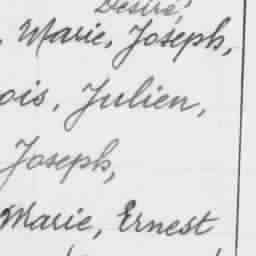 Désiré,
, Marie, Joseph,
ois, Julien,
Joseph,
Marie, Ernest